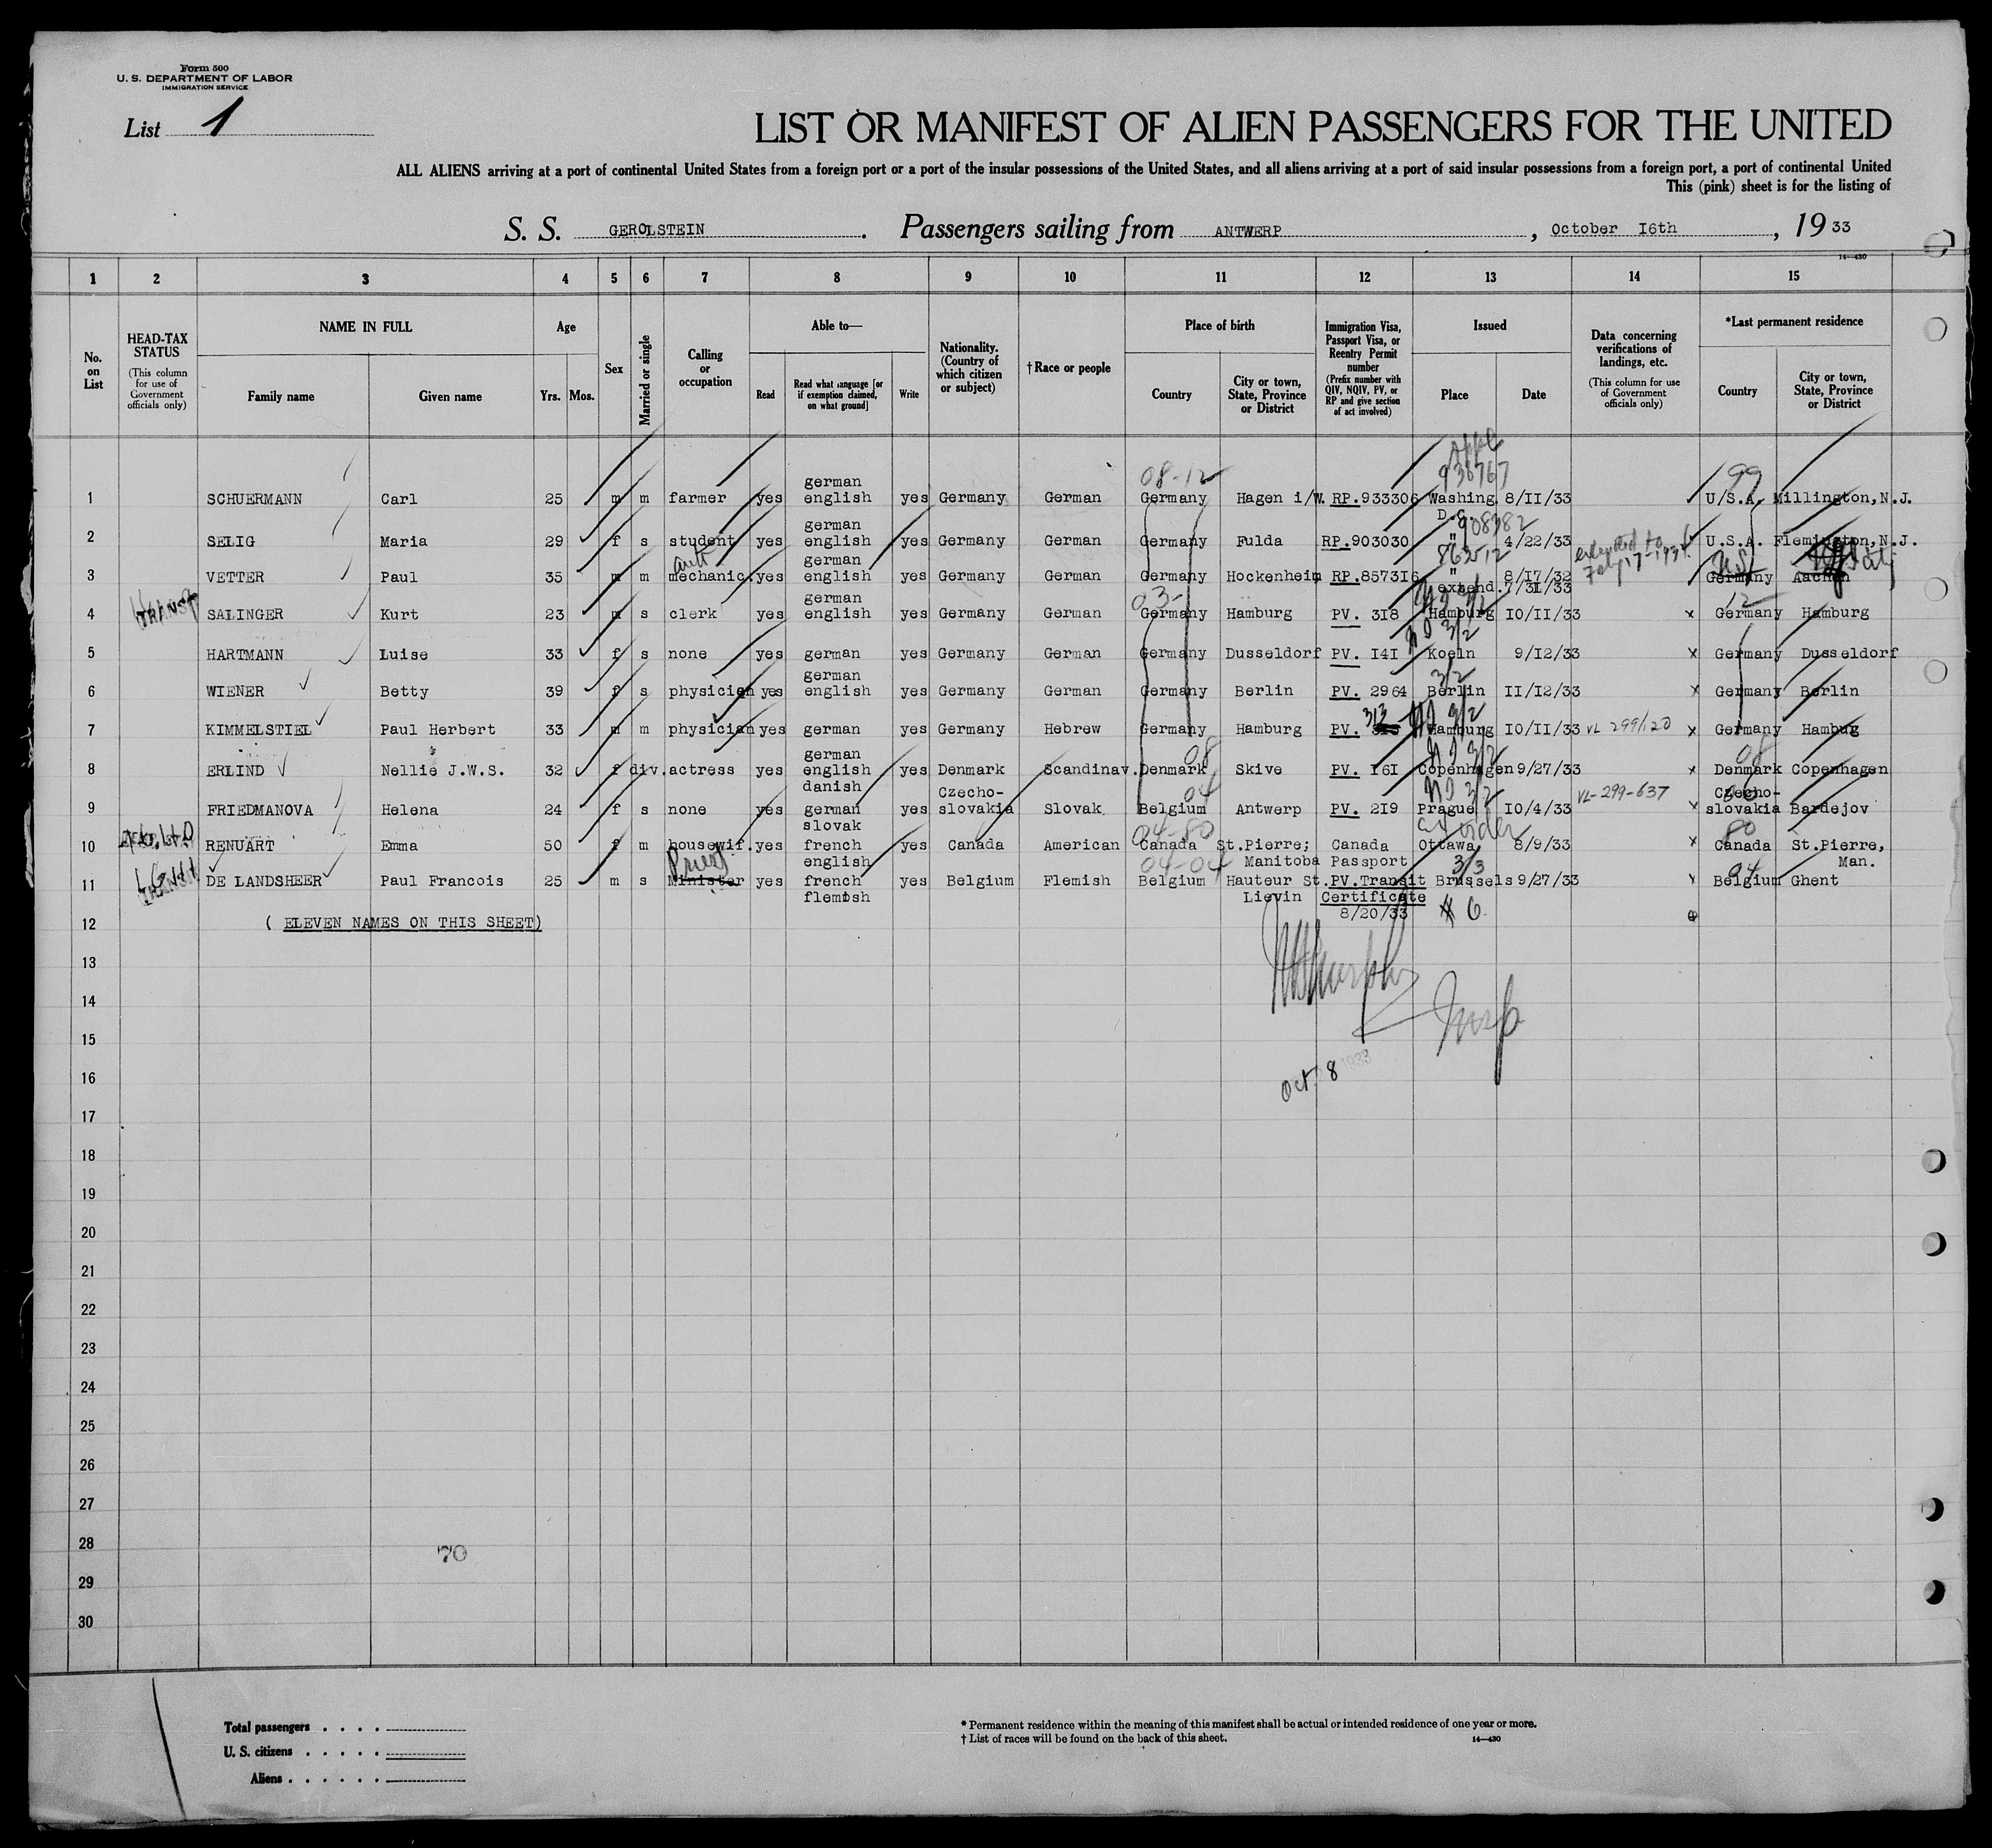 Form 500
U. S. DEPARTMENT OF LABOR
IMMIGRATION SERVICE
List 1
LIST OR MANIFEST OF ALIEN PASSENGERS FOR THE UNITED
ALL ALIENS arriving at a port of continental United States from a foreign port or a port of the insular possessions of the United States, and all aliens arriving at a port of said insular possessions from a foreign port, a port of continental United
This (pink) sheet is for the listing of
S. S. GEROLSTEIN . Passengers sailing from ANTWERP , October I6th , 19 33
14—430
1 2 3 4 5 6 7 8 9 10 11 12 13 14 15
No. on List
HEAD-TAX STATUS (This column for use of Government officials only)
NAME IN FULL Family name Given name
Age Yrs. Mos.
Sex
Married or single
Calling or occupation
Able to— Read Read what language [or if exemption claimed, on what ground] Write
Nationality. (Country of which citizen or subject)
†Race or people
Place of birth Country City or town, State, Province or District
Immigration Visa, Passport Visa, or Reentry Permit number (Prefix number with QIV, NQIV, PV, or RP and give section of act involved)
Issued Place Date
Data concerning verifications of landings, etc. (This column for use of Government officials only)
*Last permanent residence Country City or town, State, Province or District
08-12 930767 99
1 SCHUERMANN Carl 25 m m farmer yes german english yes Germany German Germany Hagen i/W. RP.933306 Washing D.C. 8/II/33 U/S.A. Millington,N.J.
908382
2 SELIG Maria 29 f s student yes german english yes Germany German Germany Fulda RP.903030 " 4/22/33 U.S.A. Flemington,N.J.
863512 extended to Feby 17-1934
3 VETTER Paul 35 m m auto mechanic. yes german english yes Germany German Germany Hockenheim RP.8573I6 " extend. 8/I7/32 7/3I/33 Germany Aachen U.S. NY City
03- 12
4 TRANSIT SALINGER Kurt 23 m s clerk yes german english yes Germany German Germany Hamburg PV. 3I8 Hamburg IO/II/33 x Germany Hamburg
3/2
5 HARTMANN Luise 33 f s none yes german yes Germany German Germany Dusseldorf PV. I4I Koeln 9/I2/33 x Germany Dusseldorf
3/2
6 WIENER Betty 39 f s physician yes german english yes Germany German Germany Berlin PV. 2964 Berlin II/I2/33 x Germany Berlin
313 3/2
7 KIMMELSTIEL Paul Herbert 33 m m physician yes german yes Germany Hebrew Germany Hamburg PV. Hamburg IO/II/33 VL 299/120 x Germany Hambug
08 3/2 08
8 ERLIND Nellie J.W.S. 32 f div. actress yes german english danish yes Denmark Scandinav. Denmark Skive PV. I6I Copenhagen 9/27/33 x Denmark Copenhagen
04 3/2
9 FRIEDMANOVA Helena 24 f s none yes german slovak yes Czecho-slovakia Slovak Belgium Antwerp PV. 2I9 Prague IO/4/33 VL-299-637 x Czecho-slovakia Bardejov
04-80 80
10 RENUART Emma 50 f m housewif. yes french english yes Canada American Canada St.Pierre; Manitoba Canada Passport Ottawa 8/9/33 x Canada St.Pierre, Man.
04-04 3/3 04
11 TRANSIT DE LANDSHEER Paul Francois 25 m s Minister Priest yes french flemish yes Belgium Flemish Belgium Hauteur St. Lievin PV.Transit Certificate 8/20/33 Brussels 9/27/33 Belgium Ghent
12 ( ELEVEN NAMES ON THIS SHEET)
6
13
14
Murphy
15
Insp
16
Oct. 8 1933
17
18
19
20
21
22
23
24
25
26
27
28
70
29
30
Total passengers . . . .
U. S. citizens . . . . .
Aliens . . . . . .
* Permanent residence within the meaning of this manifest shall be actual or intended residence of one year or more.
† List of races will be found on the back of this sheet. 14—430